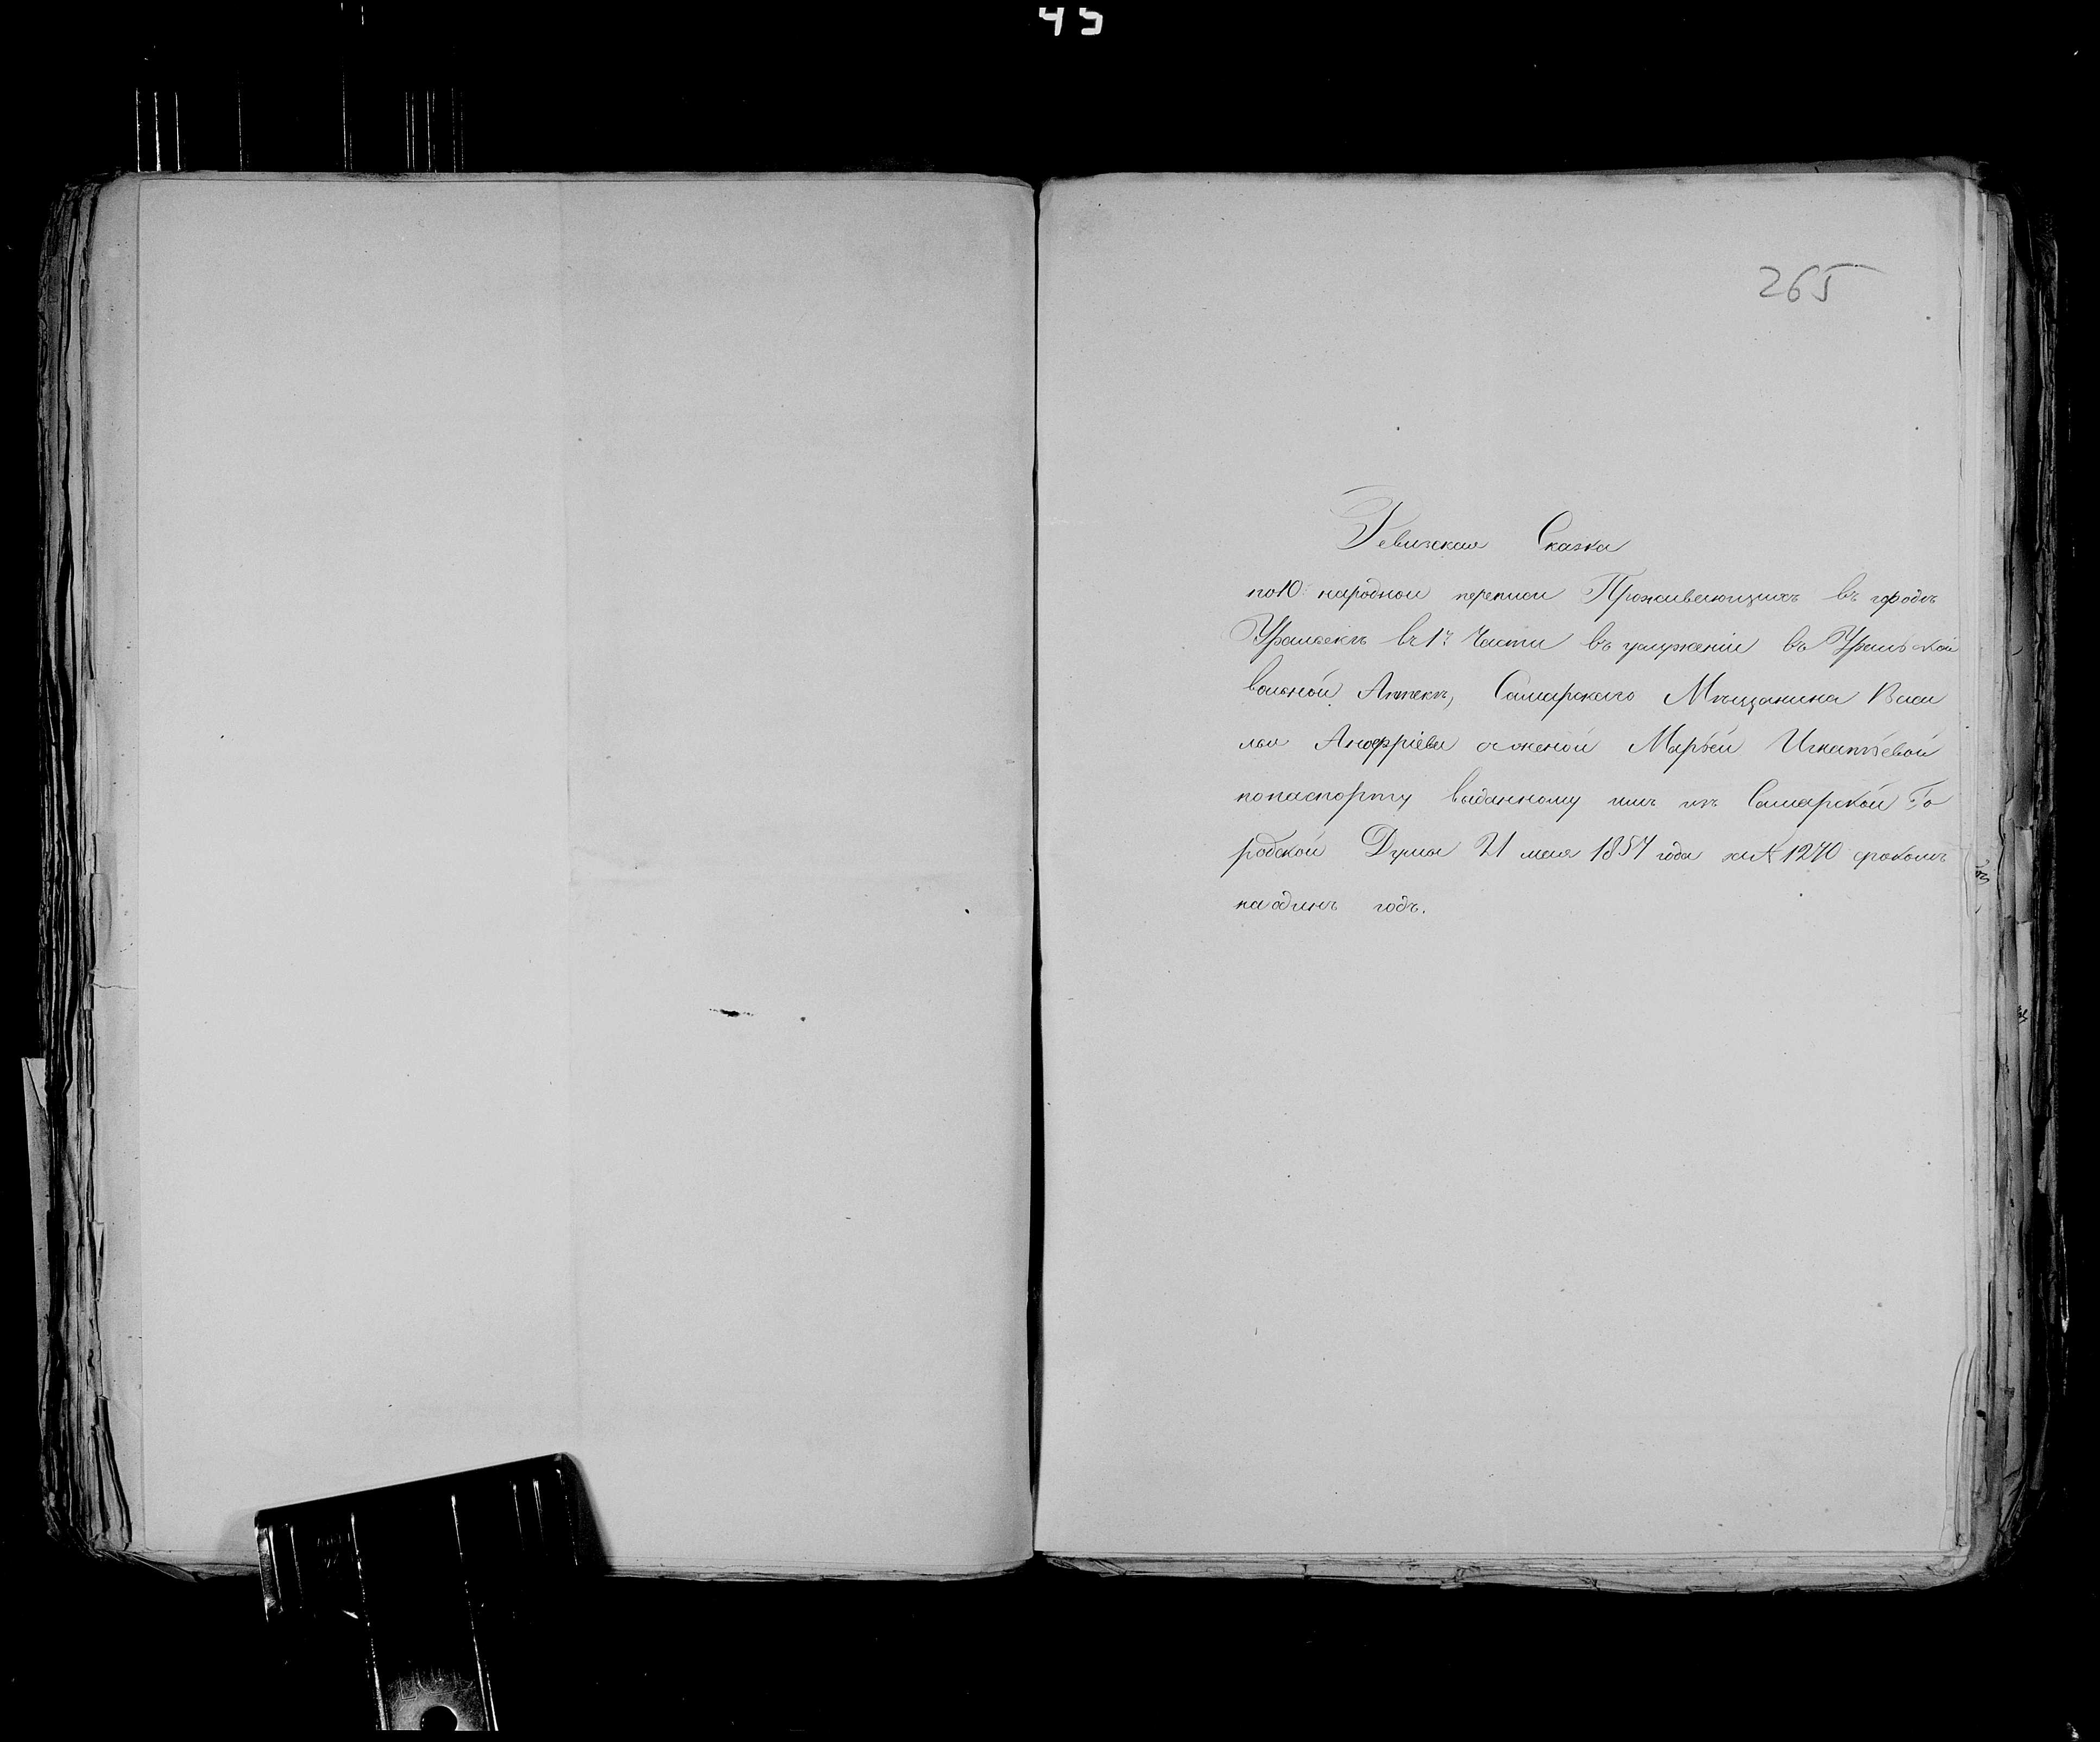 45
265
Ревизская Сказка
по 10й народной переписи Проживающихъ въ городѣ
Уральскѣ въ 1й Части въ услуженіи въ Уральской
вольной Аптекѣ, Самарскаго Мѣщанина Васи
лья Анофріева съ женой Марьей Игнатьевой
по паспорту выданному имъ изъ Самарской Го
родской Думы 21 мая 1857 года за № 1270 срокомъ
на одинъ годъ.